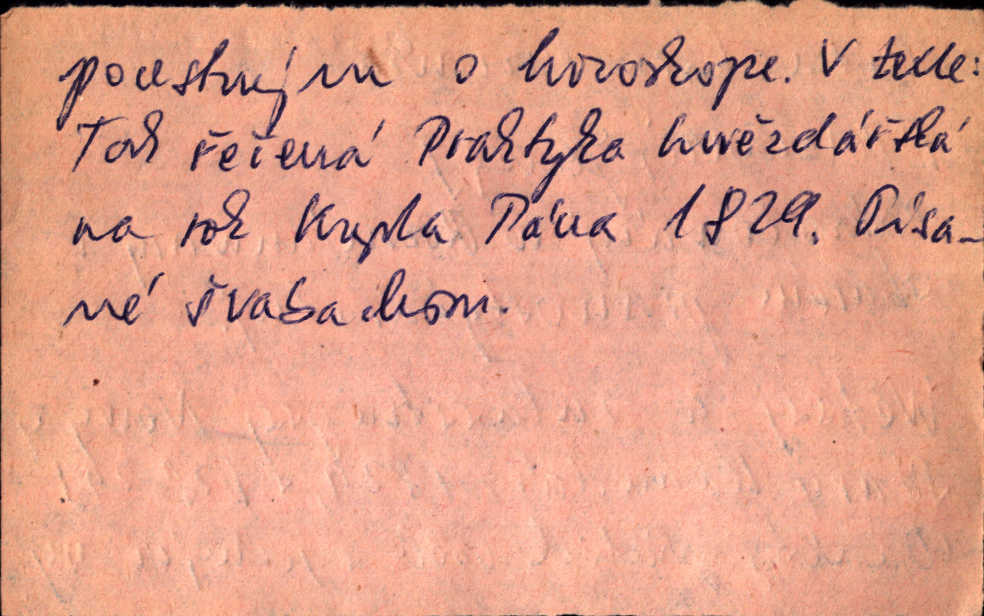 pocestným o horoskope. V texte:
Tak řečená Praktyka hvězdářská
na rok Krysta Pána 1829. Písa-
né švabachom.